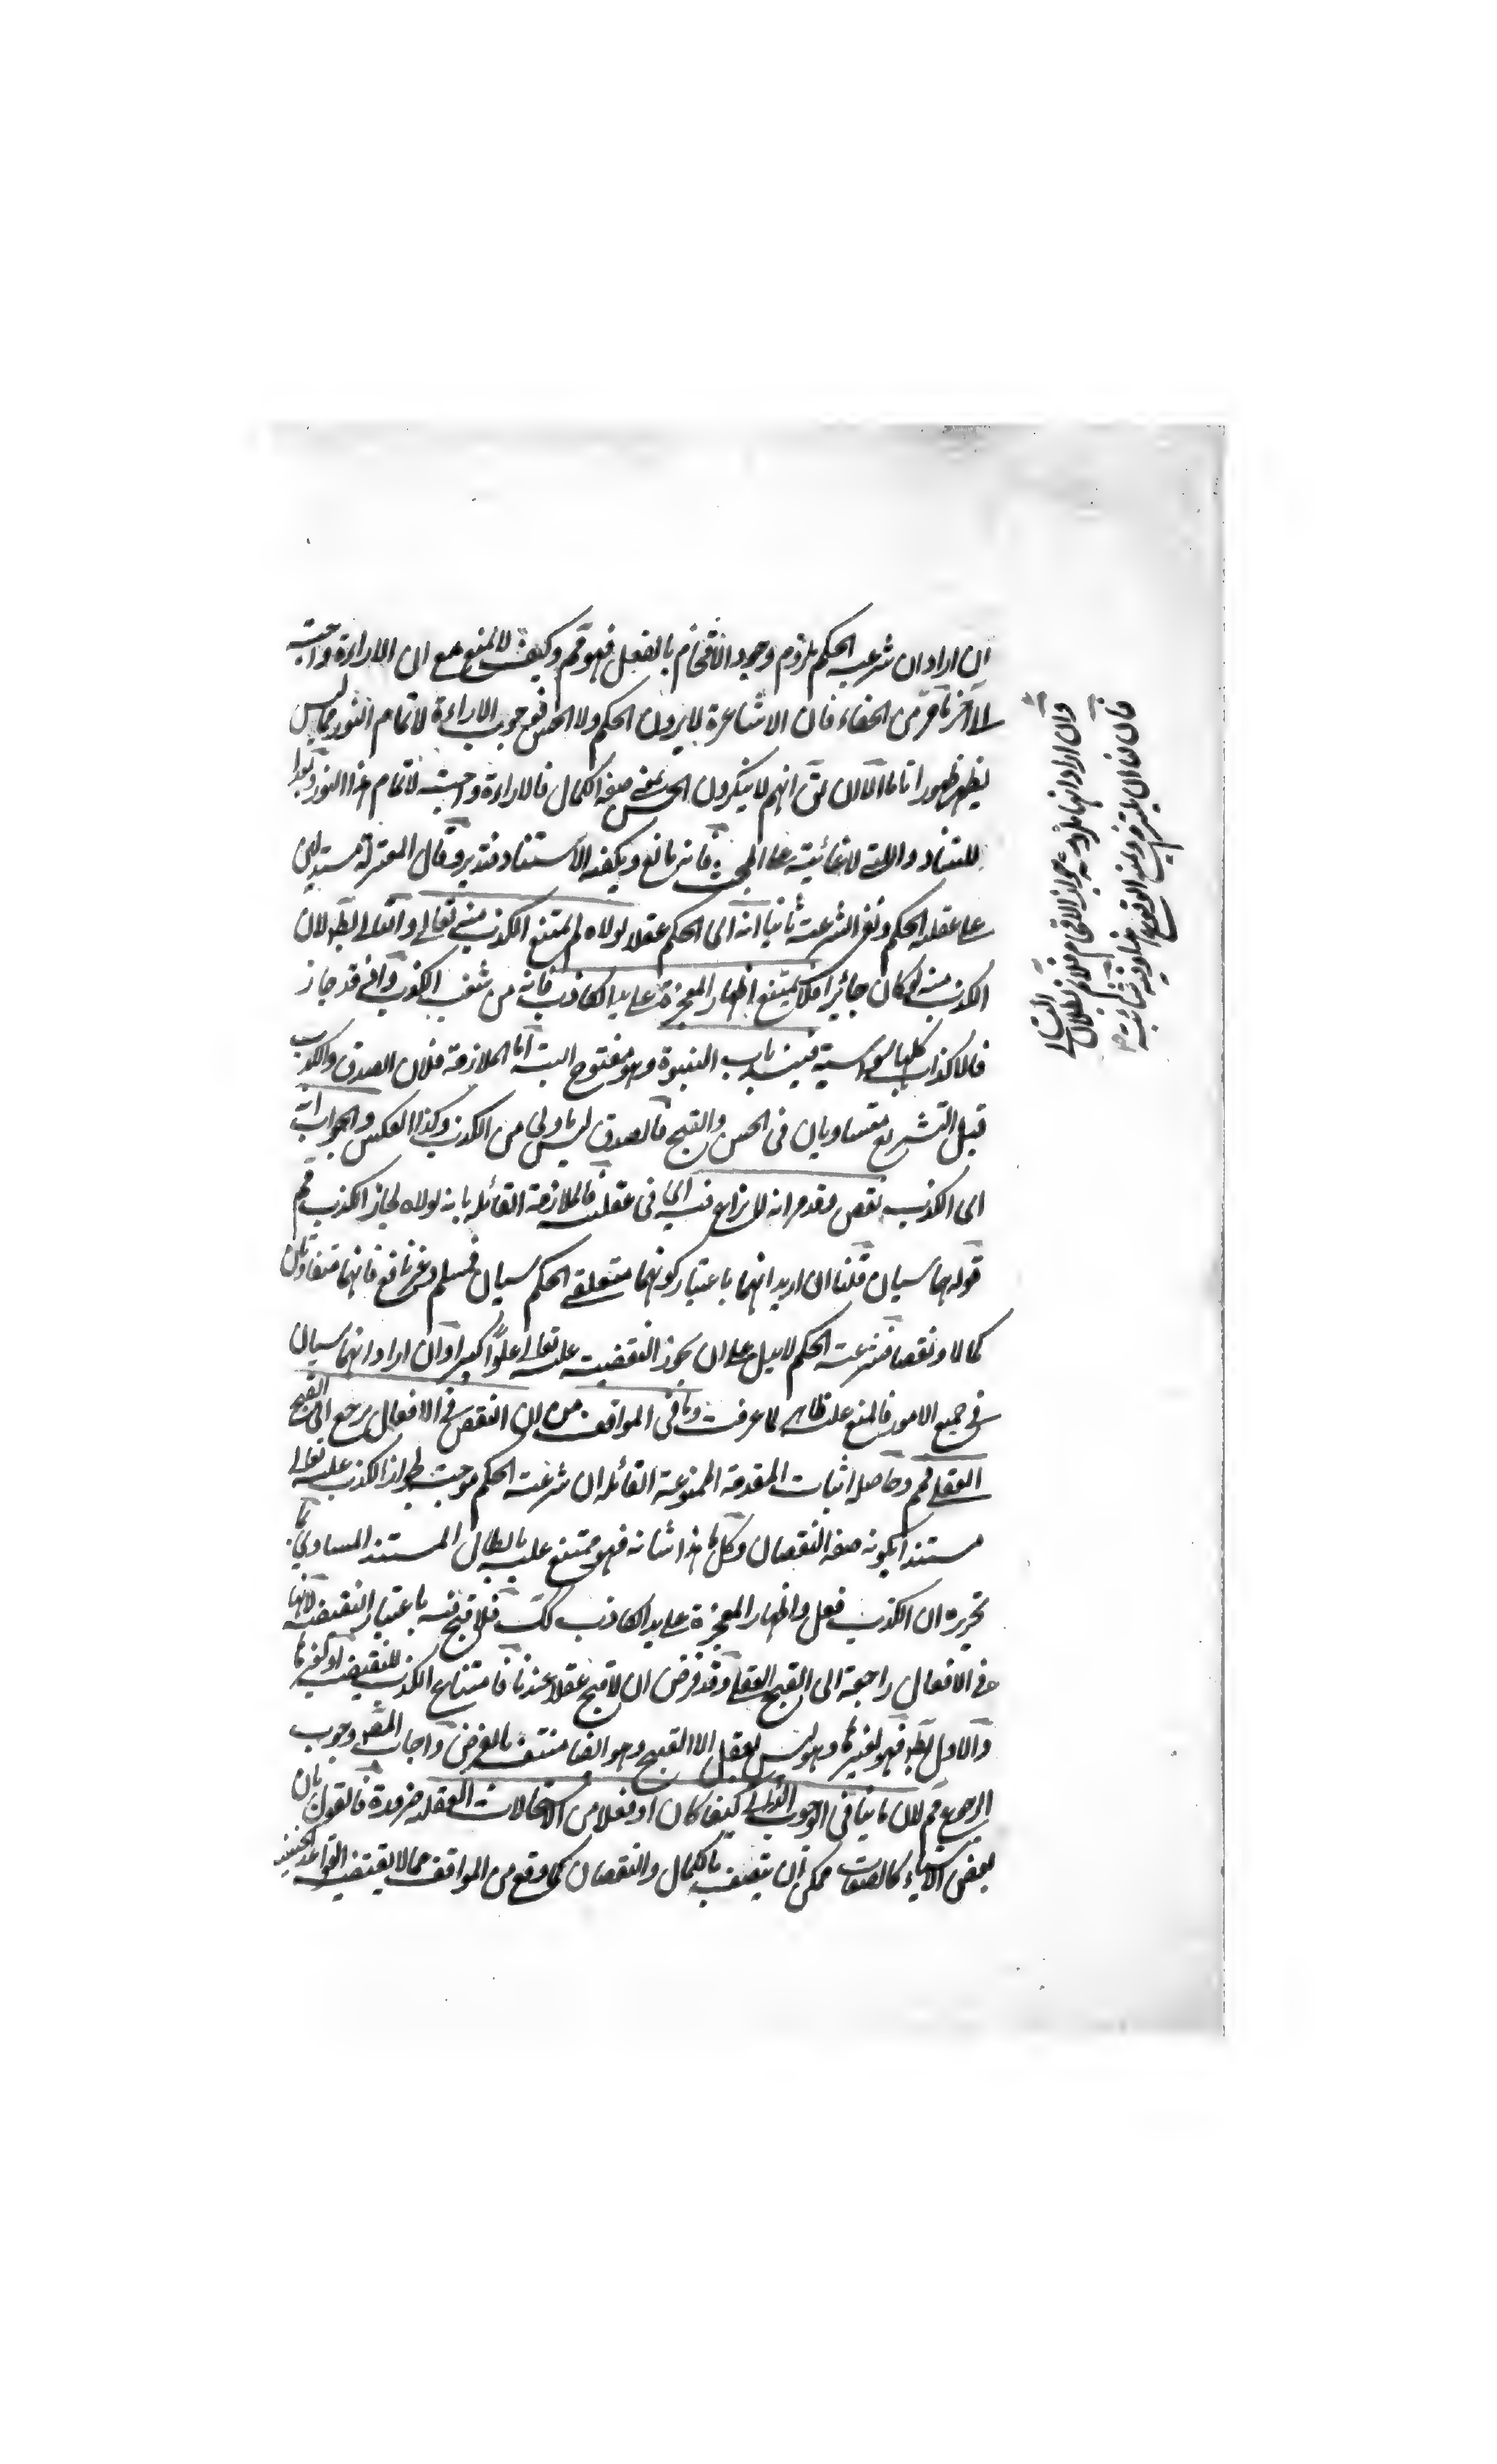 ان اراد ان شرعية الحكم ملزوم وجود الافحام بالفعل فهو مم وكيف لا يمنع مع ان الاراءة واجبة
الا آخر ما مر من الخفاء فان الاشاعرة لا يرون الحكم ولا الحسن فوجوب الاراءة لاتمام النور مما ليس
يظهر ظهورا تاما الا ان يق انهم لا ينكرون الحسن بمعنى صفة الكمال فالاراءة واجبة لاتمام هذا النور
للسناد والا لا غائية على المجيب فانه مانع ويكفيه الاستناد فتدبر وقال المعتزلة مستدلين
على عقلية الحكم ونفى الشرعية ثانيا انه اى الحكم عقلا لولاه لم يمتنع الكذب منه تعالى والتالى بط لان
الكذب منه لو كان جائزا فلا يمتنع اظهار المعجزة على يد الكاذب فانه من شعب الكذب واذ قد جاز
فالاكذاب كلها سواسية فينسد باب النبوة وهو مفتوح البتة اما الملازمة فلان الصدق والكذب
قبل التشريع متساويان فى الحسن والقبح فالصدق ليس باولى من الكذب وكذا العكس والجواب انه
اى الكذب نقص وقد مر انه لا نزاع فيه اى فى عقليته فالملازمة القائلة بانه لولاه لجاز الكذب مم
قولهما سيان قلنا ان اريد انهما باعتبار كونهما متعلقى الحكم سيان فمسلم وغير نافع فانهما متفاوتان
كمالا ونقصا فشرعية الحكم لا يدل على ان يجوز النقيضية عليه تعالى علوا كبيرا وان اراد انهما سيان
فى جميع الامور فالمنع عليه ظاهر لما عرفت وما فى المواقف من ان النقص فى الافعال يرجع الى القبح
العقلى مم وحاصله اثبات المقدمة الممنوعة القائلة ان شرعية الحكم موجبة لجواز الكذب عليه تعالى
مستندا بكونه صفة النقصان وكل ما هذا شانه فهو ممتنع عليه بابطال المستند المساوى
تحريره ان الكذب فعل واظهار المعجزة على يد الكاذب كك فلا قبح فيه باعتبار النقيضية لانها
فى الافعال راجعة الى القبح العقلى وقد فرض ان لا قبح عقلا عندنا فامتناع الكذب للنقيضية او لغيرها
والاول بط فهو لغيرها وهو ليس بعقل الا القبح وهو ايضا منتف بالفرض واجاب المص وجوب
الرجوع مم لان ما ينافى الوجوب الذاتى كيفا كان او فعلا من الاستحالات العقلية ضرورة فالقول بان
بعض الاشياء كالصفات ممكن ان يتصف بالكمال والنقصان كما وقع من المواقف مما لا يقتضيه القواعد
وان اراد انها ملزومة جواز الافحام فلا نم بطلان التالى